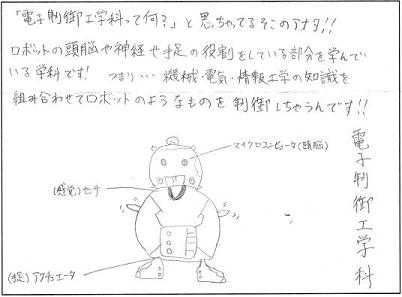 「電子制御工学科って何?」と思っちゃてるそこのアナタ!!
ロボットの頭脳や神経や手足の役割をしている部分を学んで
いる学科です! つまり… 機械・電気・情報工学の知識を
組み合わせてロボットのようなものを制御しちゃうんです!!
マイクロコンピュータ(頭脳)
(感覚)センサ
(足)アクチュエータ
電子制御工学科